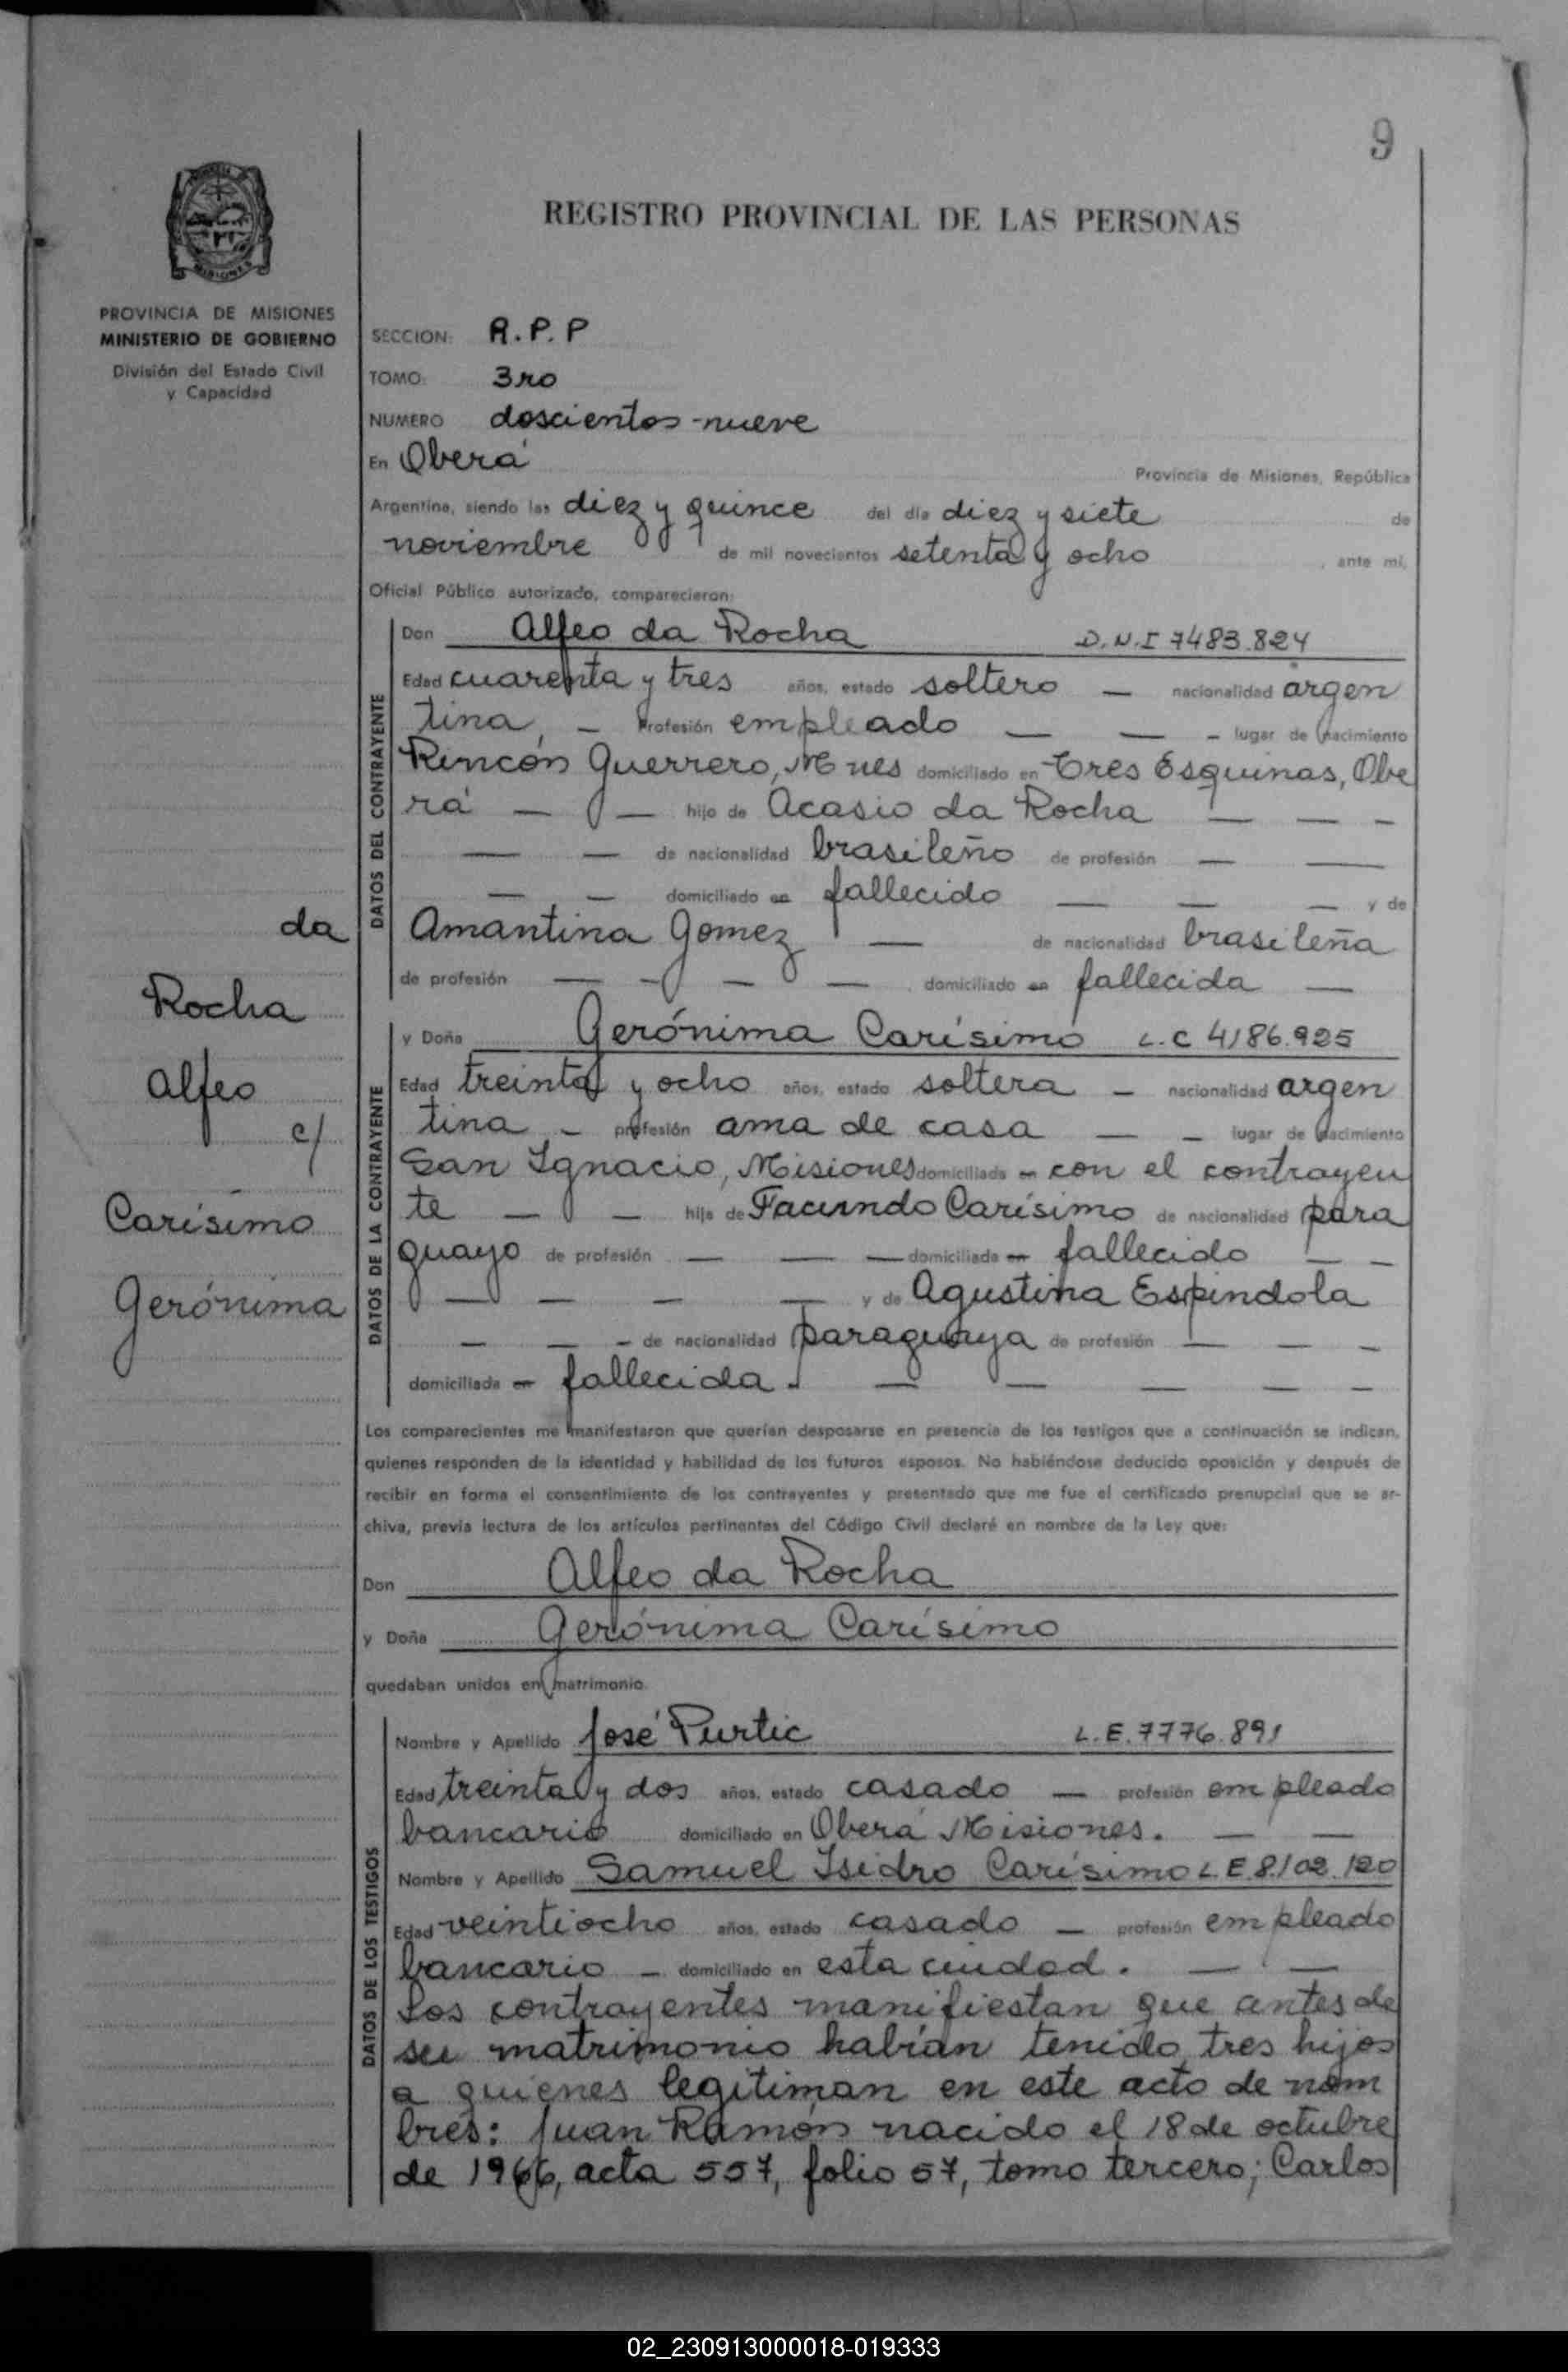 9
REGISTRO PROVINCIAL DE LAS PERSONAS
PROVINCIA DE MISIONES
MINISTERIO DE GOBIERNO
División del Estado Civil
y Capacidad
SECCION: R.P.P
TOMO: 3ro
NUMERO doscientos nueve
En Oberá
Provincia de Misiones, República
Argentina, siendo las diez y quince del día diez y siete de
noviembre de mil novecientos setenta y ocho, ante mi,
Oficial Público autorizado, comparecieron:
DATOS DEL CONTRAYENTE
Don Alfeo da Rocha D.N.I 7483.824
Edad cuarenta y tres años, estado soltero — nacionalidad argen
tina, — Profesión empleado — — - lugar de nacimiento
Rincón Guerrero, Mnes domiciliado en Tres Esquinas, Obe
rá — — hijo de Acasio da Rocha — — -
— — de nacionalidad brasileño de profesión — —
— — domiciliado en fallecido — — — y de
Amantina Gomez — de nacionalidad brasileña
de profesión — - — — domiciliado en fallecida —
DATOS DE LA CONTRAYENTE
y Doña Gerónima Carísimo L.C 4186.925
Edad treinta y ocho años, estado soltera — nacionalidad argen
tina - profesión ama de casa — - lugar de nacimiento
San Ignacio, Misiones domiciliada en con el contrayen
te — — hija de Facundo Carísimo de nacionalidad para
guayo de profesión — — — domiciliada en fallecido — -
— — — — y de Agustina Espindola
— — - de nacionalidad paraguaya de profesión — — -
domiciliada en fallecida. — — — — —
Los comparecientes me manifestaron que querían desposarse en presencia de los testigos que a continuación se indican,
quienes responden de la identidad y habilidad de los futuros esposos. No habiéndose deducido oposición y después de
recibir en forma el consentimiento de los contrayentes y presentado que me fue el certificado prenupcial que se ar-
chiva, previa lectura de los artículos pertinentes del Código Civil declaré en nombre de la Ley que:
Don Alfeo da Rocha
y Doña Gerónima Carísimo
quedaban unidos en matrimonio.
DATOS DE LOS TESTIGOS
Nombre y Apellido José Purtic L.E.7776.891
Edad treinta y dos años, estado casado — profesión empleado
bancario domiciliado en Oberá Misiones. — —
Nombre y Apellido Samuel Isidro Carísimo L.E.8.102.120
Edad veintiocho años, estado casado — profesión empleado
bancario — domiciliado en esta ciudad. — —
Los contrayentes manifiestan que antes de
su matrimonio habían tenido tres hijos
a quienes legitiman en este acto de nom
bres: Juan Ramón nacido el 18 de octubre
de 1966, acta 557, folio 57, tomo tercero; Carlos
da
Rocha
Alfeo
c/
Carísimo
Gerónima
02_230913000018-019333